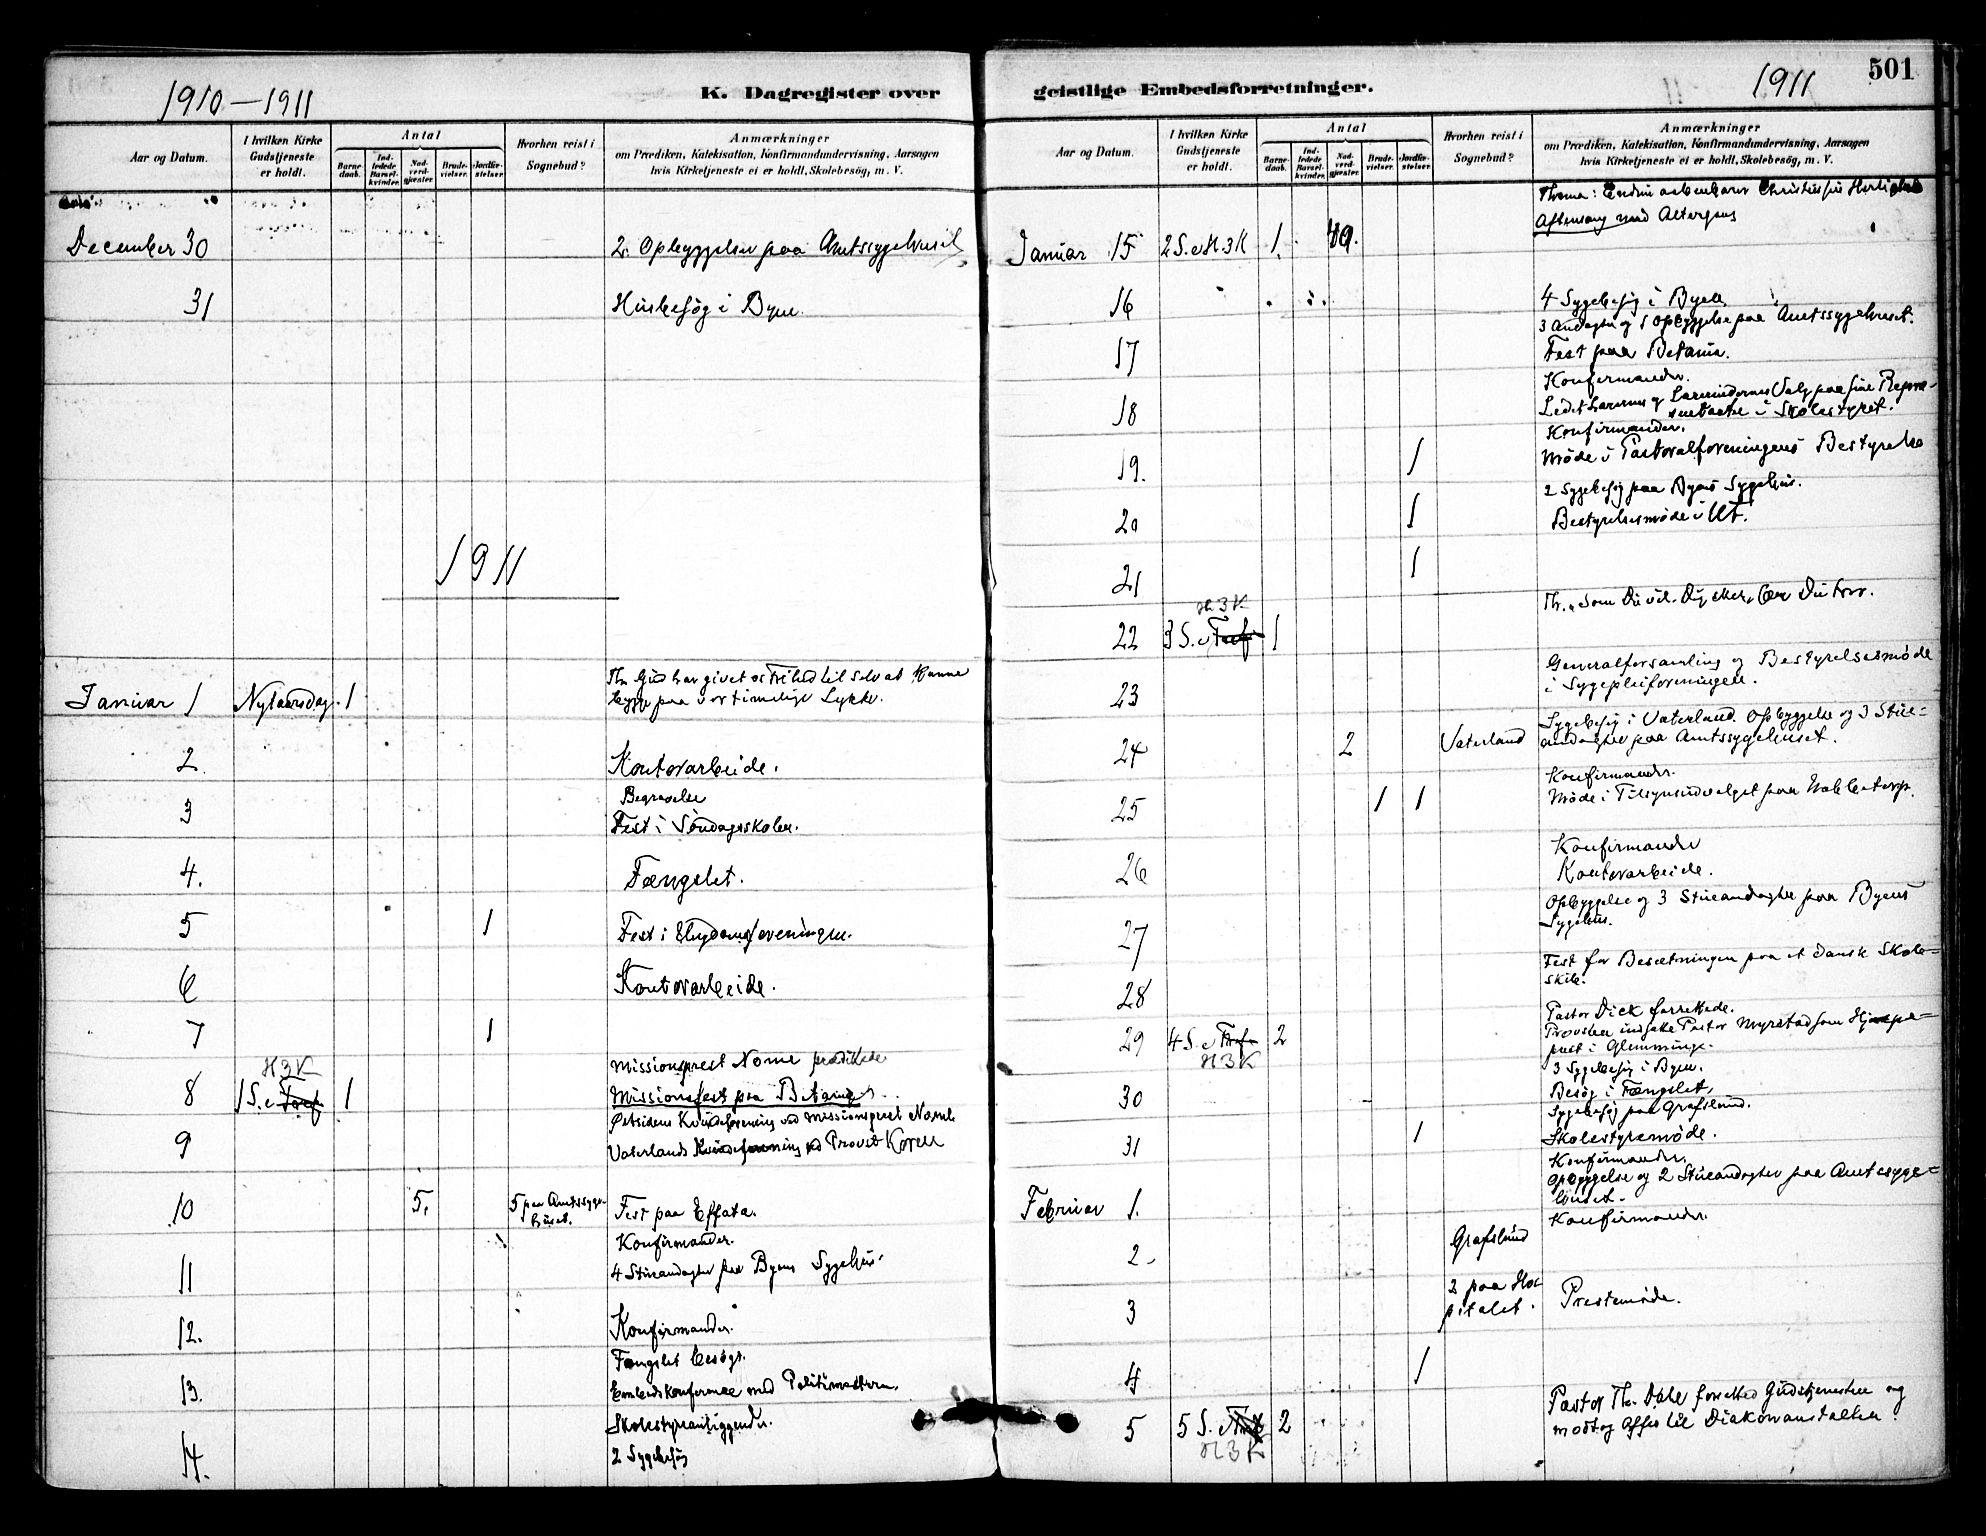 1910-1911
K. Dagregister over
Aar og Datum.
I hvilken Kirke Gudstjeneste er holdt.
Antal
Barnedaab.
Indledede Barselkvinder.
Nadverdgjæster.
Brudevielser.
Jordfæstelser.
Hvorhen reist i Sognebud?
Anmærkninger
om Prædiken, Katekisation, Konfirmandundervisning, Aarsagen
hvis Kirketjeneste ei er holdt, Skolebesøg, m. V.
December 30 2. Opbyggelser paa Amtssygehuset
31 Husbesøg i Byen.
1911
Januar 1 Nytaarsdag. 1 Th. Gud har givet os Frihed til selv at kunne
bygge paa vor timelige Lykke.
2 Kontorarbeide.
3 Begravelse
Fest i Søndagsskolen.
4. Fængslet.
5 1 Fest i Ungdomsforeningen.
6 Kontorarbeide.
7 1
H3K
8 1 S. e 1 Missionsprest Nome prædikede
Missionsfest paa Betania
9 Østsidens Kvindeforening ved Missionsprest Nome
Vaterlands Kvindeforening ved Provst Koren
10 5. 5 paa Amtssyge-
huset. Fest paa Effata.
11 Konfirmander.
4 Stueandagter paa Byens Sygehus.
12. Konfirmander.
13. Fængslet besøgt.
Embedskonferance med Politimesteren.
14. Skolestyreanliggender.
2 Sygebesøg
geistlige Embedsforretninger.
1911
501
Aar og Datum.
I hvilken Kirke Gudstjeneste er holdt.
Antal
Barnedaab.
Indledede Barselkvinder.
Nadverdgjæster.
Brudevielser.
Jordfæstelser.
Hvorhen reist i Sognebud?
Anmærkninger
om Prædiken, Katekisation, Konfirmandundervisning, Aarsagen
hvis Kirketjeneste ei er holdt, Skolebesøg, m. V.
Thema: Endnu aabenbarer Christus sin Herlighed
Aftensang med Altergang
Januar 15 2 S. e H. 3 K 1.
16 4 Sygebesøg i Byen
3 Andagter og 1 Opbyggelse paa Amtssygehuset.
17 Fest paa Betania.
Konfirmander.
18 Ledet Lærernes og Lærerindernes Valg paa sine Repræ-
sentanter i Skolestyret.
Konfirmander.
19. 1 Møde i Pastoralforeningens Bestyrelse
2 Sygebesøg paa Byens Sygehus.
20 1 Bestyrelsesmøde i UF.
21 1
H 3 K
22 3 S. e 1 Th. "Som Du vil. Dig sker, som Du tror.
23 Generalforsamling og Bestyrelsesmøde
i Sygepleiforeningen.
24 2 Vaterland Sygebesøg i Vaterland. Opbyggelse og 3 Stue-
andagter paa Amtssygehuset.
25 1 1 Konfirmander.
Møde i Tilsynsudvalget paa Nabbetorp.
26 Konfirmander
Kontorarbeide.
27 Opbyggelse og 3 Stueandagter paa Byens
Sygehus.
28 Fest for Besætningen paa et Dansk Skole-
skib.
29 4 S. e 2 Pastor Dick forrettede.
H 3 K Provsten indsatte Pastor Myrstad som Hjælpe-
prest i Glemminge.
30 3 Sygebesøg i Byen.
Besøg i Fængslet.
31 1 Sygebesøg paa Grafslund.
Skolestyremøde.
Konfirmander.
Februar 1. Opbyggelse og 2 Stueandagter paa Amtssyge-
huset.
2 Grafslund Konfirmander.
3 2 paa Hos-
pitalet. Prestemøde.
4 1
5 5 S. e 2 Pastor Th. Dahl forretted Gudstjenesten og
H 3 K modtog Offer til Diakonanstalten.